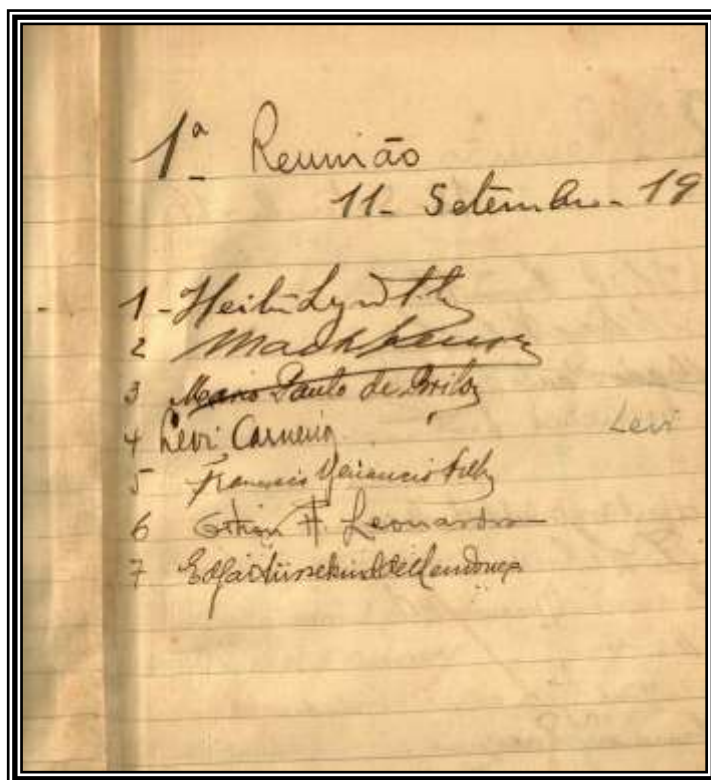 1ª Reunião
11 - Setembro - 19
1 - Heitor Lyra
2
3 Mario Paulo de Brito
4 Levi Carneiro Levi
5 Francisco Venancio Filho
6 Othon H. Leonardos
7 Edgar Süssekind de Mendonça